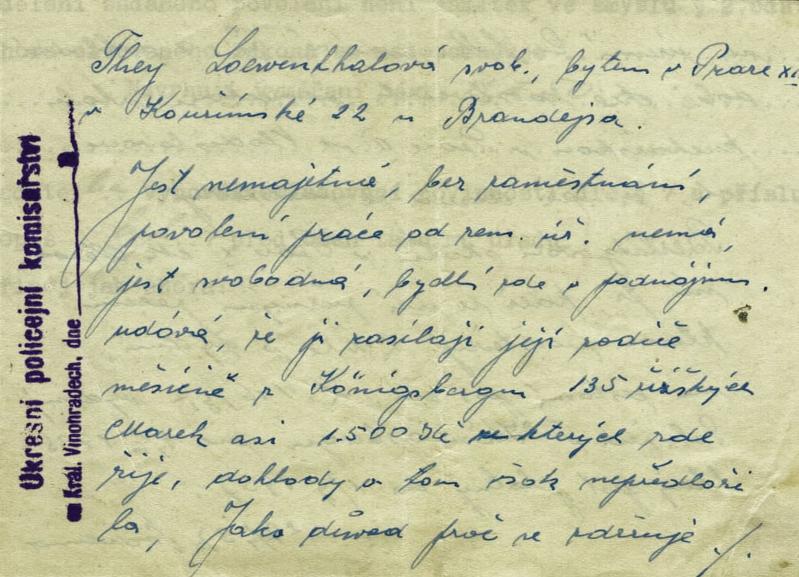 Okresní policejní komisařství
na Král. Vinohradech, dne
They Loewenthalová svob., bytem v Praze XI
v Kouřimské 22 u Brandejsa.
Jest nemajetná, bez zaměstnání,
povolení práce od zem. úř. nemá,
jest svobodná, bydlí zde v podnájmu.
udává, že ji zasílají její rodiče
měsíčně z Königsbergu 135 říšských
Marek asi 1.500 Kč z kterých zde
žije, doklady o tom však nepředloži
la, Jako důvod proč se zdržuje ./.